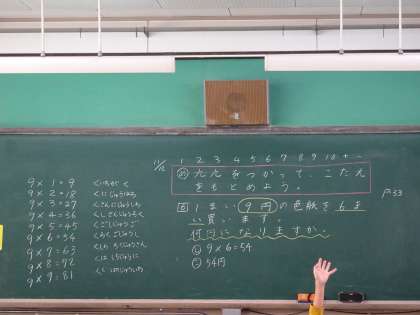 9×1=9 くいちがく
9×2=18 くにじゅうはち
9×3=27 くさんにじゅうしち
9×4=36 くしさんじゅうろく
9×5=45 くごしじゅうご
9×6=54 くろくごじゅうし
9×7=63 くしちろくじゅうさん
9×8=72 くはしちじゅうに
9×9=81 くくはちじゅういち
11/12
1 2 3 4 5 6 7 8 9 10
九九をつかって、こたえ
をもとめよう。
P53
1まい9円の色紙を6ま
い買います。
何円になりますか。
9×6=54
54円